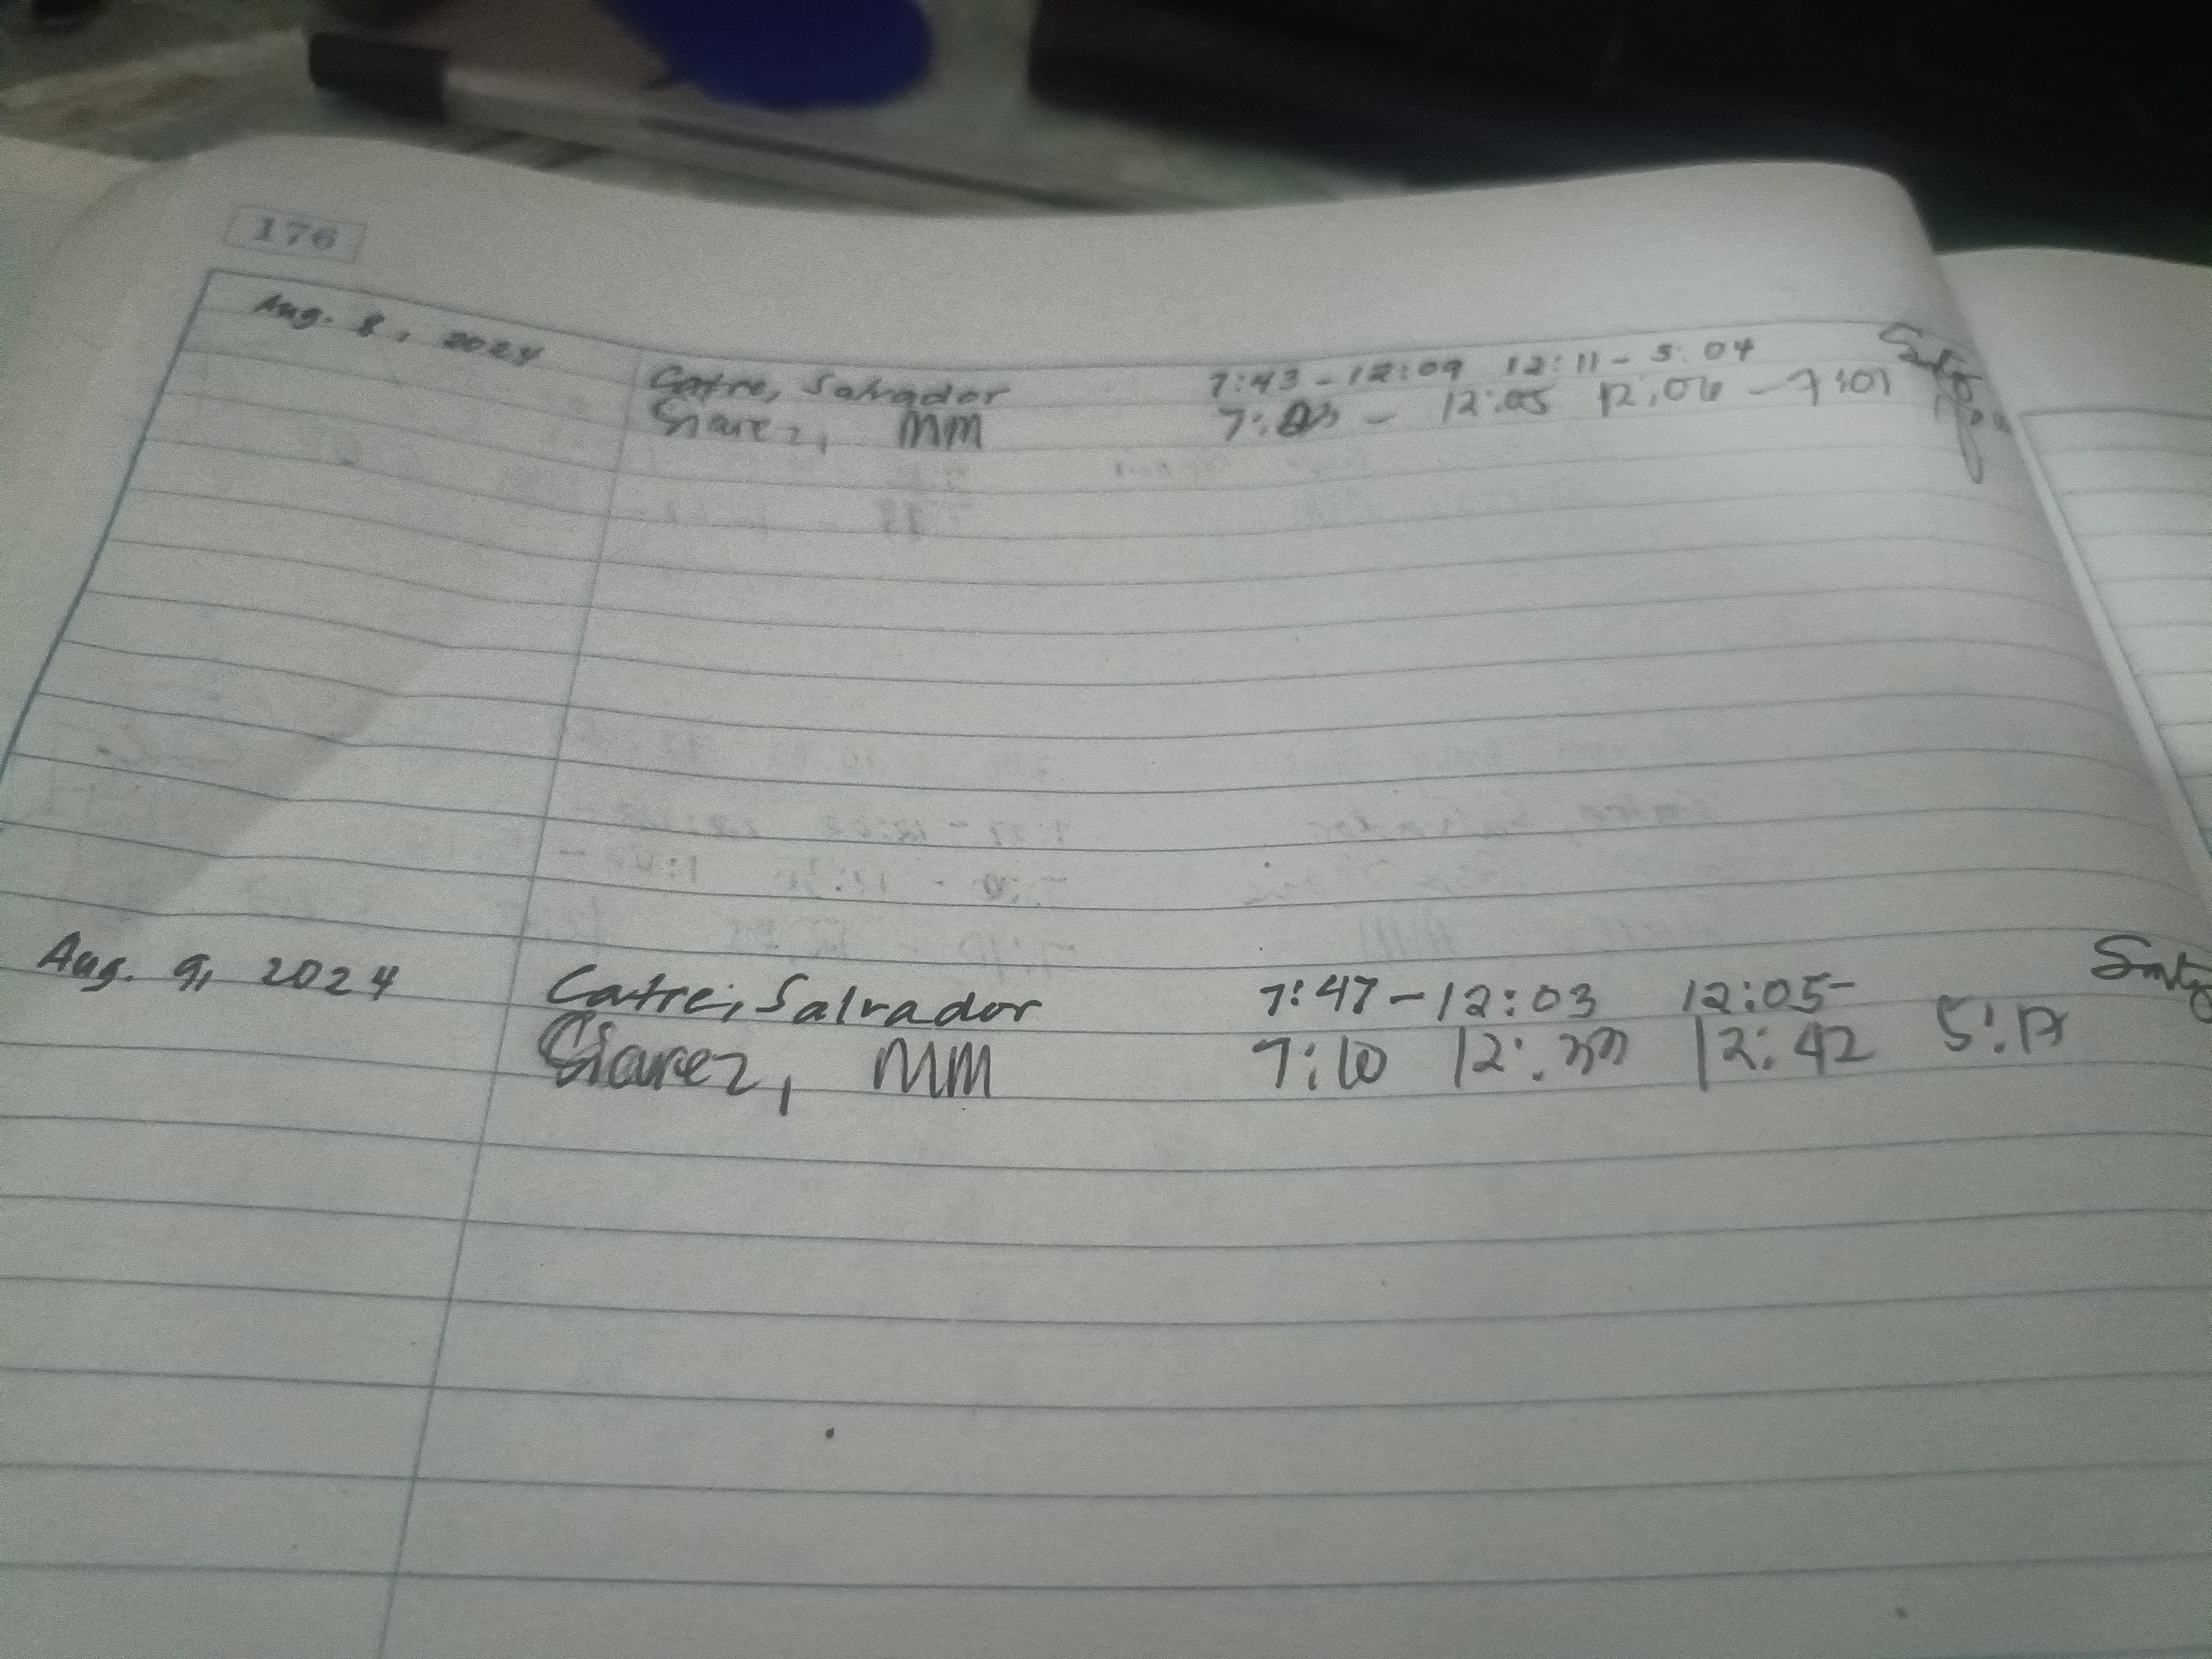 176
Aug. 8, 2024
Catre, Salvador 7:43 - 12:09 12:11 - 5:04
MM 12:05 12:06 - 7:01
Aug. 9, 2024
Catre, Salvador 7:47 - 12:03 12:05 -
Siarez, MM 7:10 12:42 5:17